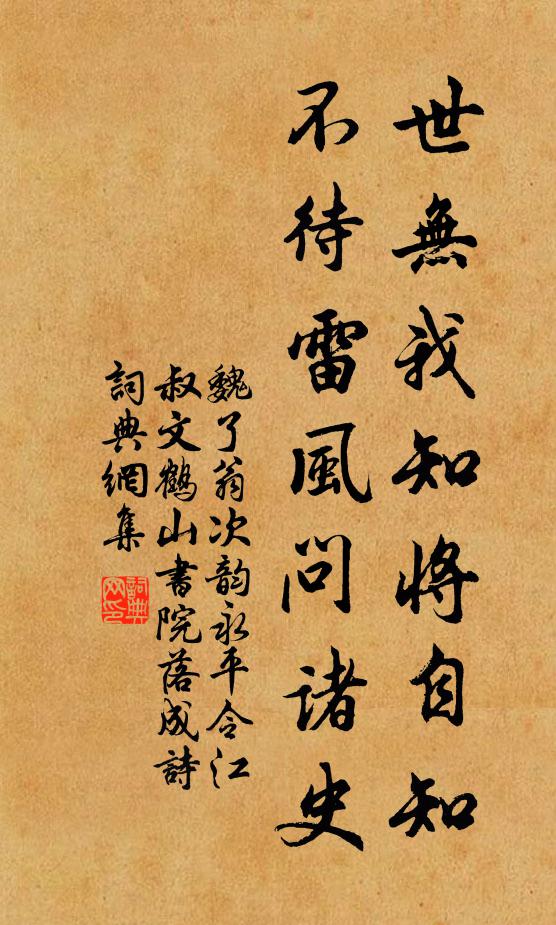 世無我知將自知
不待雷風問諸史
魏了翁次韵永平令江
叔文鶴山書院落成詩
詞典網集
詞典網印